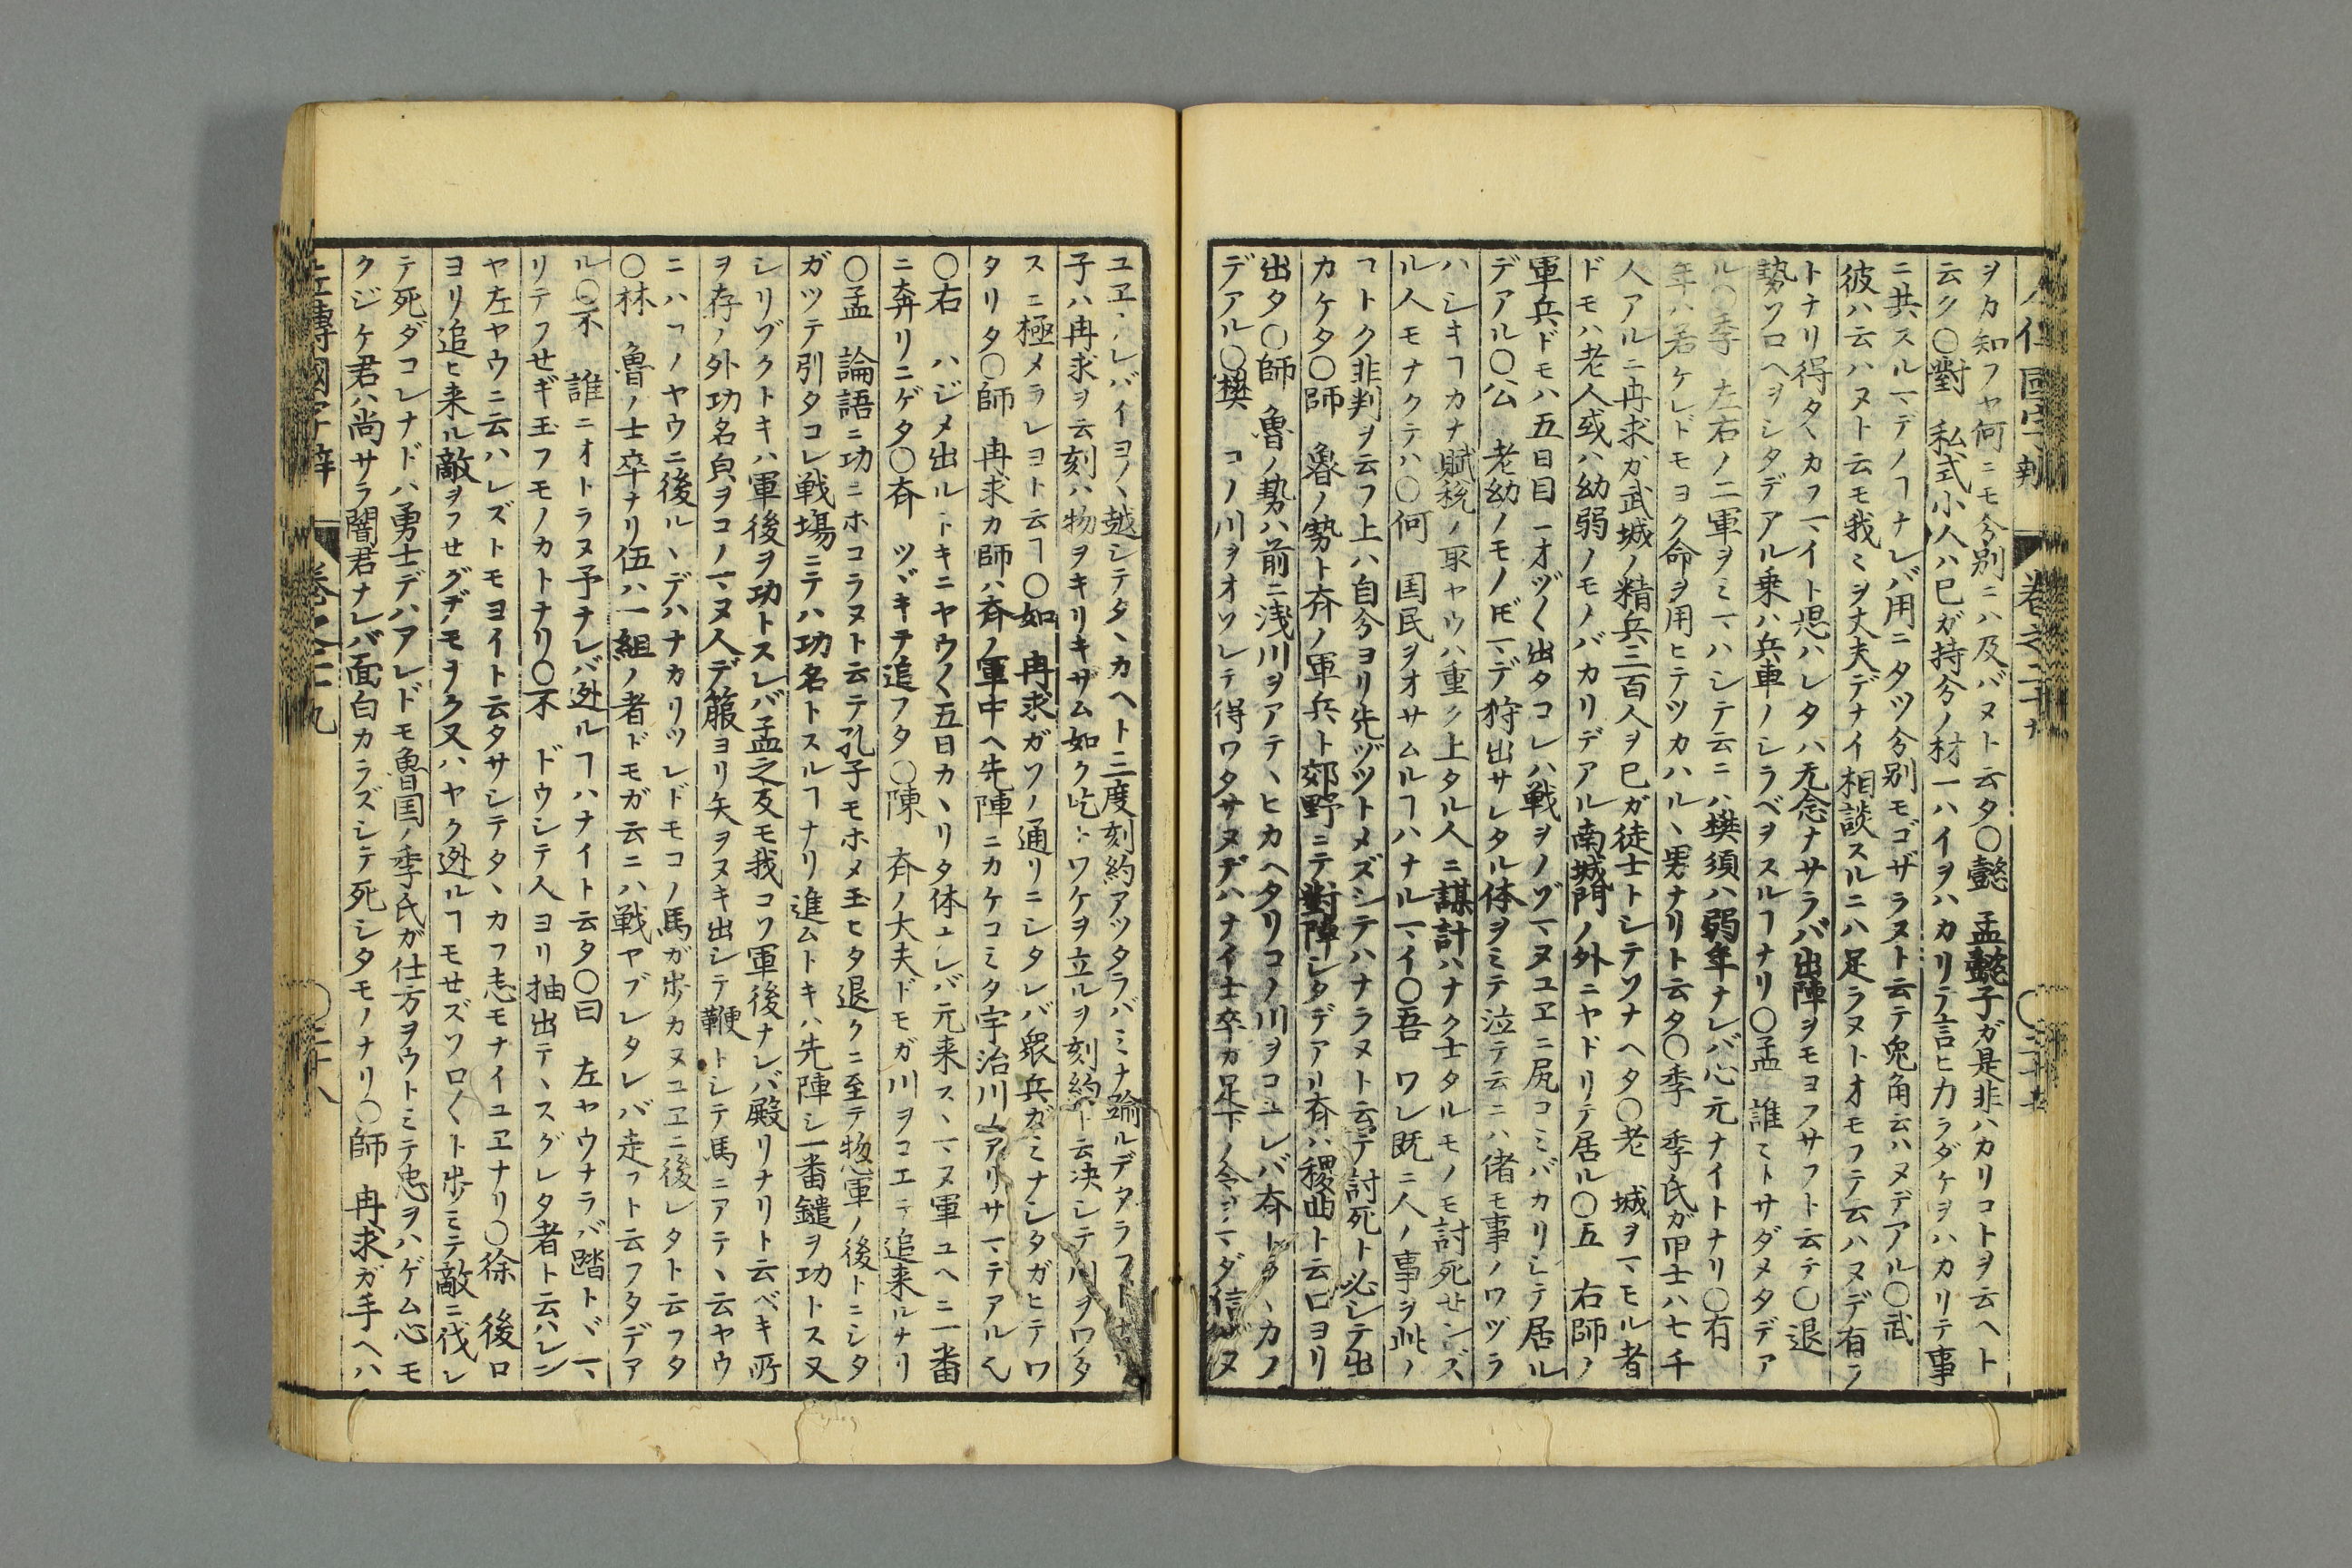 ヲカ知フヤ何ニモ今別ニハ及バヌト云タ〇懿 孟懿子ガ是非ハカリコトヲ云ヘト
云ク〇對 私式小人ハ已ガ持分ノ材一ハイヲハカリテ言ヒカラダケヲハカリテ事
ニ共スルマデノヿナレバ用ニタツ分別モゴザラヌト云テ兎角云ハヌデアル〇武
彼ハ云ハヌト云モ我ミヲ丈夫デナイ相談スルニハ足ラヌトオモフテ云ハヌデ有ノ
トナリ得タヽカフマイト思ハレタハ无念ナサラバ出陣ヲモヨフサフト云テ〇退
勢ソロヘヲシタデアル乗ハ兵車ノシラベヲスルヿナリ〇孟 誰ミトサダメタデア
ル〇季 左右ノ二軍ヲミマハシテ云ニハ樊須ハ弱年ナレバ心元ナイトナリ〇有
年ハ若ケレドモヨク命ヲ用ヒテツカハルヽ男ナリト云タ〇季 季氏ガ甲士ハ七千
人アルニ冉求ガ武城ノ精兵三百人ヲ已ガ徒士トシテソナヘタ〇老 城ヲマモル者
ドモハ老人或ハ幼弱ノモノバカリデアル南城門ノ外ニヤドリテ居ル〇五 右師ノ
軍兵ドモハ五日目ニオヅ〱出タコレハ戦ヲノゾマヌユヱニ尻コミバカリシテ居ル
デアル〇公 老幼ノモノ𪜈マデ狩出サレタル体ヲミテ泣テ云ニハ偖モ事ノワヅラ
ハシキヿカナ賦税ノ取ヤウハ重ク上タル人ニ謀計ハナク士タルモノモ討死センズ
ル人モナクテハ〇何 国民ヲオサムルヿハナルマイ〇吾 ワレ既ニ人ノ事ヲ此ノ
ヿトク非判ヲ云フ上ハ自今ヨリ先ヅツトメズシテハナラヌト云テ討死ト必シテ出
カケタ〇師 魯ノ勢ト斉ノ軍兵ト郊野ニテ對陣シタデアリ斉ハ稷曲ト云口ヨリ
出タ〇師 魯ノ勢ハ前ニ浅川ヲアテヽヒカヘタリコノ川ヲコユレバ斉トタヽカフ
デアル〇樊 コノ川ヲオソレテ得ワタサヌデハナイ士卒ガ足下ノ令ヲマダ信ゼヌ
ユヱヽレバイヨ〱越シテタヽカヘト三度刻約アツタラバミナ踰ルデアラフトナリ
子ハ冉求ヲ云刻ハ物ヲキリキザム如ク吃トワケヲ立ルヲ刻約ト云决シテ川ヲワタ
スニ極メラレヨト云ヿ〇如 冉求ガソノ通リニシタレバ衆兵ガミナシタガヒテワ
タリタ〇師 冉求カ師ハ斉ノ軍中ヘ先陣ニカケコミタ宇治川ノアリサマデアル
〇右 ハジメ出ルトキニヤウ〱五日カヽリタ体ユレバ元来スヽマヌ軍ユヘニ一番
ニ奔リニゲタ〇斉 ツヾキテ追フタ〇陳 斉ノ大夫ドモガ川ヲコエテ追来ルナリ
〇孟 論語ニ功ニホコラヌト云テ孔子モホメ玉ヒタ退クニ至テ惣軍ノ後トニシタ
ガツテ引タコレ戦場ニテハ功名トスルヿナリ進ムトキハ先陣シ一番鑓ヲ功トス又
シリゾクトキハ軍後ヲ功トスレバ孟之反モ我コソ軍後ナレバ殿リナリト云ベキ所
ヲ存ノ外功名負ヲコノマヌ人デ箙ヨリ矢ヲヌキ出シテ鞭トシテ馬ニアテヽ云ヤウ
ニハコノヤウニ後ルヽデハナカリツレドモコノ馬ガ歩カヌユヱニ後レタト云フタ
〇林 魯ノ士卒ナリ伍ハ一組ノ者ドモガ云ニハ戦ヤブレタレバ走フト云フタデア
ル〇不 誰ニオトラヌ予ナレバ迯ルヿハナイト云タ〇曰 左ヤウナラバ踏トヾマ
リテフセギ玉フモノカトナリ〇不 ドウシテ人ヨリ抽出テヽスグレタ者ト云ハレン
ヤ左ヤウニ云ハレズトモヨイト云タサシテタヽカフ志モナイユヱナリ〇徐 後口
ヨリ追ヒ来ル敵ヲフセグデモヲク又ハヤク迯ルヿモセズソロ〱ト歩ミテ敵ニ伐レ
テ死ダコレナドハ勇士デハアレドモ魯国ノ季氏ガ仕方ヲウトミテ忠ヲハゲム心モ
クジケ君ハ尚サラ闇君ナレバ面白カラズシテ死シタモノナリ〇師 冉求ガ手ヘハ
左傳國字辯 卷之二十九 〇三十八